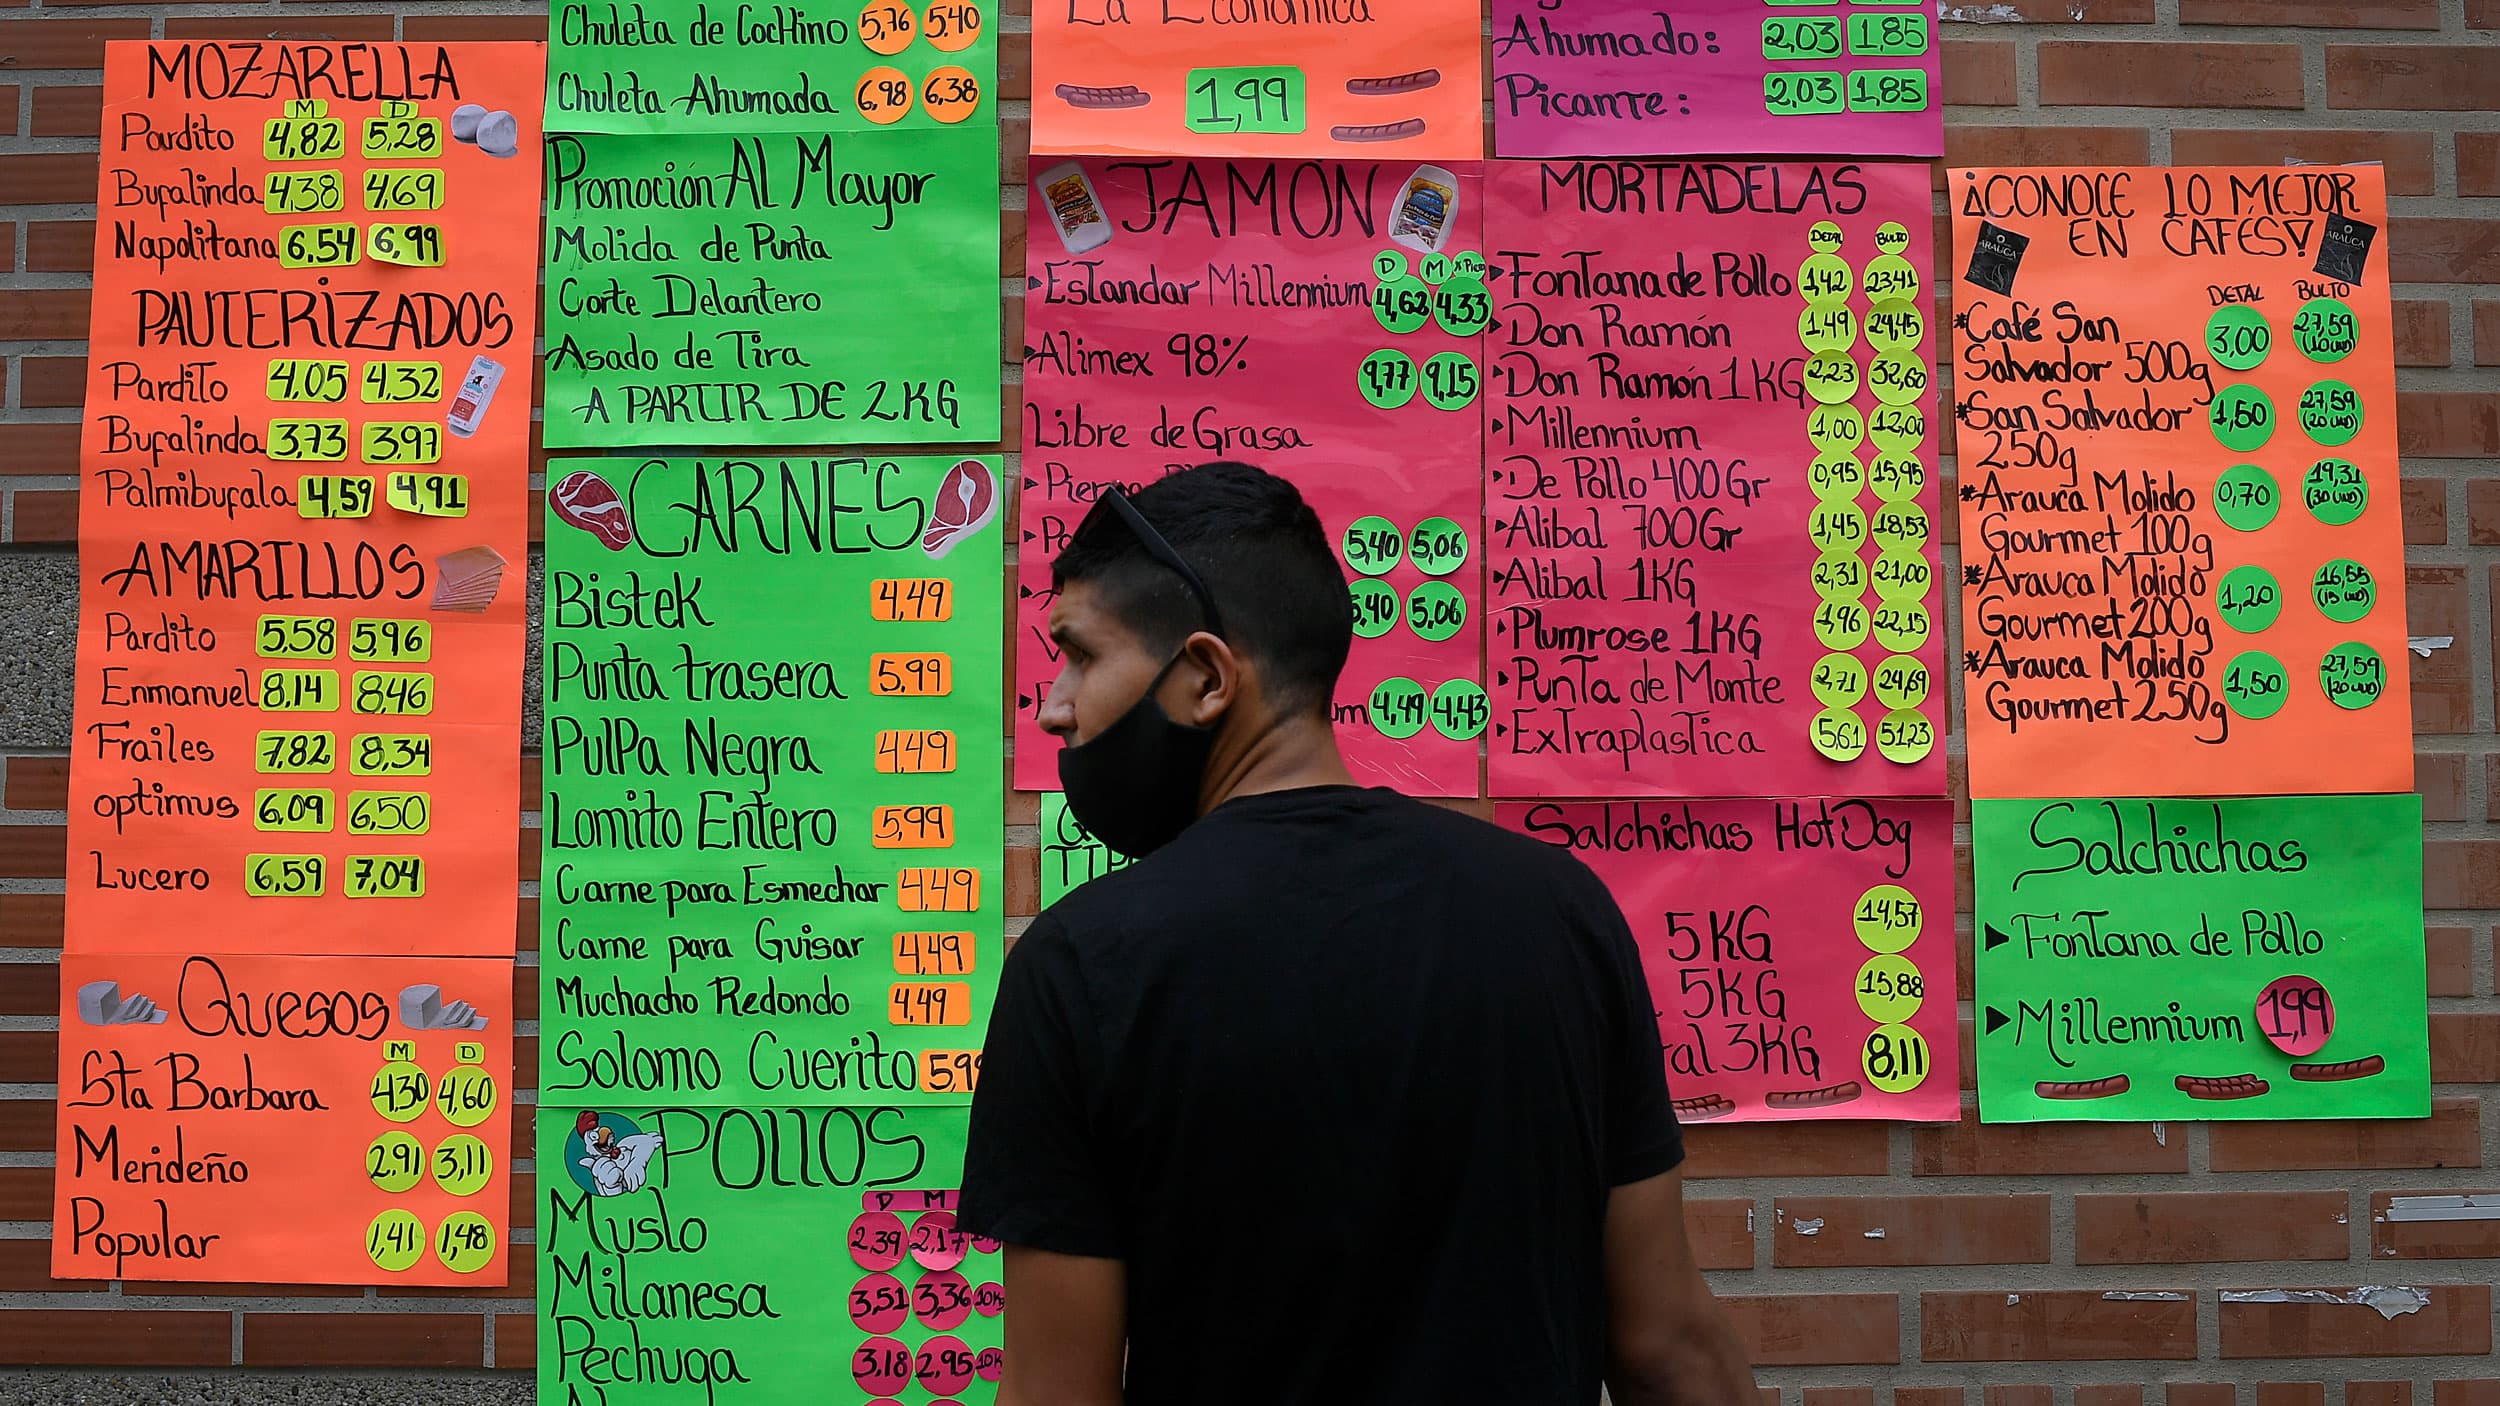 MOZARELLA
M D
Pardito 4,82 5,28
Bufalinda 4,38 4,69
Napolitana 6,54 6,99
PAUTERIZADOS
Pardito 4,05 4,32
Bufalinda 3,73 3,97
Palmibufala 4,59 4,91
AMARILLOS
Pardito 5,58 5,96
Enmanuel 8,14 8,46
Frailes 7,82 8,34
optimus 6,09 6,50
Lucero 6,59 7,04
Quesos
M D
Sta Barbara 4,30 4,60
Merideño 2,91 3,11
Popular 1,41 1,48
Chuleta de Cochino 5,76 5,40
Chuleta Ahumada 6,98 6,38
Promoción Al Mayor
Molida de Punta
Corte Delantero
Asado de Tira
A PARTIR DE 2KG
CARNES
Bistek 4,49
Punta trasera 5,99
Pulpa Negra 4,49
Lomito Entero 5,99
Carne para Esmechar 4,49
Carne para Guisar 4,49
Muchacho Redondo 4,49
Solomo Cuerito 5,99
POllOS
D M
Muslo 2,39 2,17
Milanesa 3,51 3,36 10Kg
Pechuga 3,18 2,95 10K
La Económica
1,99
JAMÓN
D M x Pieza
Estandar Millennium 4,62 4,33
Alimex 98% 9,77 9,15
Libre de Grasa
5,40 5,06
5,40 5,06
4,49 4,43
Ahumado: 2,03 1,85
Picante: 2,03 1,85
MORTADELAS
DETAL BULTO
Fontana de Pollo 1,42 23,41
Don Ramón 1,49 24,45
Don Ramón 1KG 2,23 32,60
Millennium 1,00 12,00
De Pollo 400Gr 0,95 15,95
Alibal 700Gr 1,45 18,53
Alibal 1KG 2,31 21,00
Plumrose 1KG 1,96 22,15
Punta de Monte 2,71 24,69
Extraplastica 5,61 51,23
Salchichas HotDog
5KG 14,57
5KG 15,88
3KG 8,11
¡CONOCE LO MEJOR
EN CAFÉS!
ARAUCA ARAUCA
DETAL BULTO
*Café San
Salvador 500g 3,00 27,59 (10 UND)
*San Salvador
250g 1,50 27,59 (20 UND)
*Arauca Molido
Gourmet 100g 0,70 19,31 (30 UND)
*Arauca Molido
Gourmet 200g 1,20 16,55 (15 UND)
*Arauca Molido
Gourmet 250g 1,50 27,59 (20 UND)
Salchichas
Fontana de Pollo
Millennium 1,99